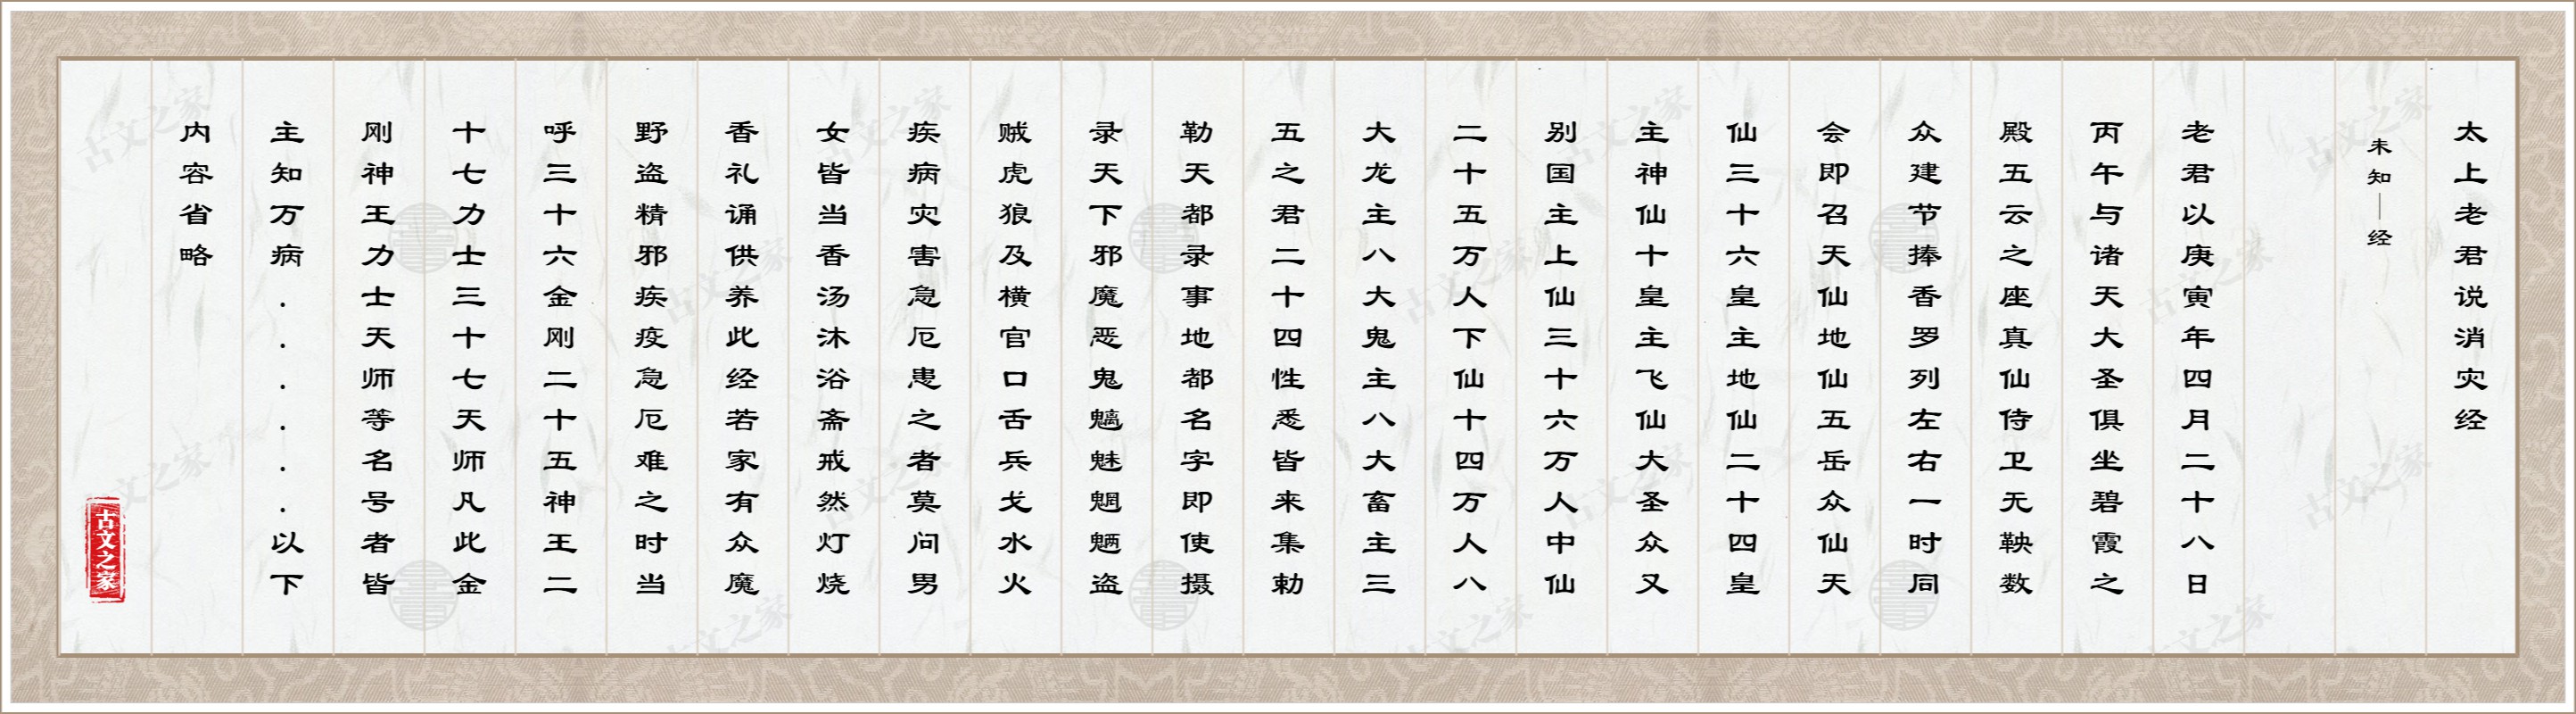 太上老君说消灾经
未知—经
老君以庚寅年四月二十八日
丙午与诸天大圣俱坐碧霞之
殿五云之座真仙侍卫无鞅数
众建节捧香罗列左右一时同
会即召天仙地仙五岳众仙天
仙三十六皇主地仙二十四皇
主神仙十皇主飞仙大圣众又
别国主上仙三十六万人中仙
二十五万人下仙十四万人八
大龙主八大鬼主八大畜主三
五之君二十四性悉皆来集勅
勒天都录事地都名字即使摄
录天下邪魔恶鬼魑魅魍魉盗
贼虎狼及横官口舌兵戈水火
疾病灾害急厄患之者莫问男
女皆当香汤沐浴斋戒然灯烧
香礼诵供养此经若家有众魔
野盗精邪疾疫急厄难之时当
呼三十六金刚二十五神王二
十七力士三十七天师凡此金
刚神王力士天师等名号者皆
主知万病......以下
内容省略
古文之家